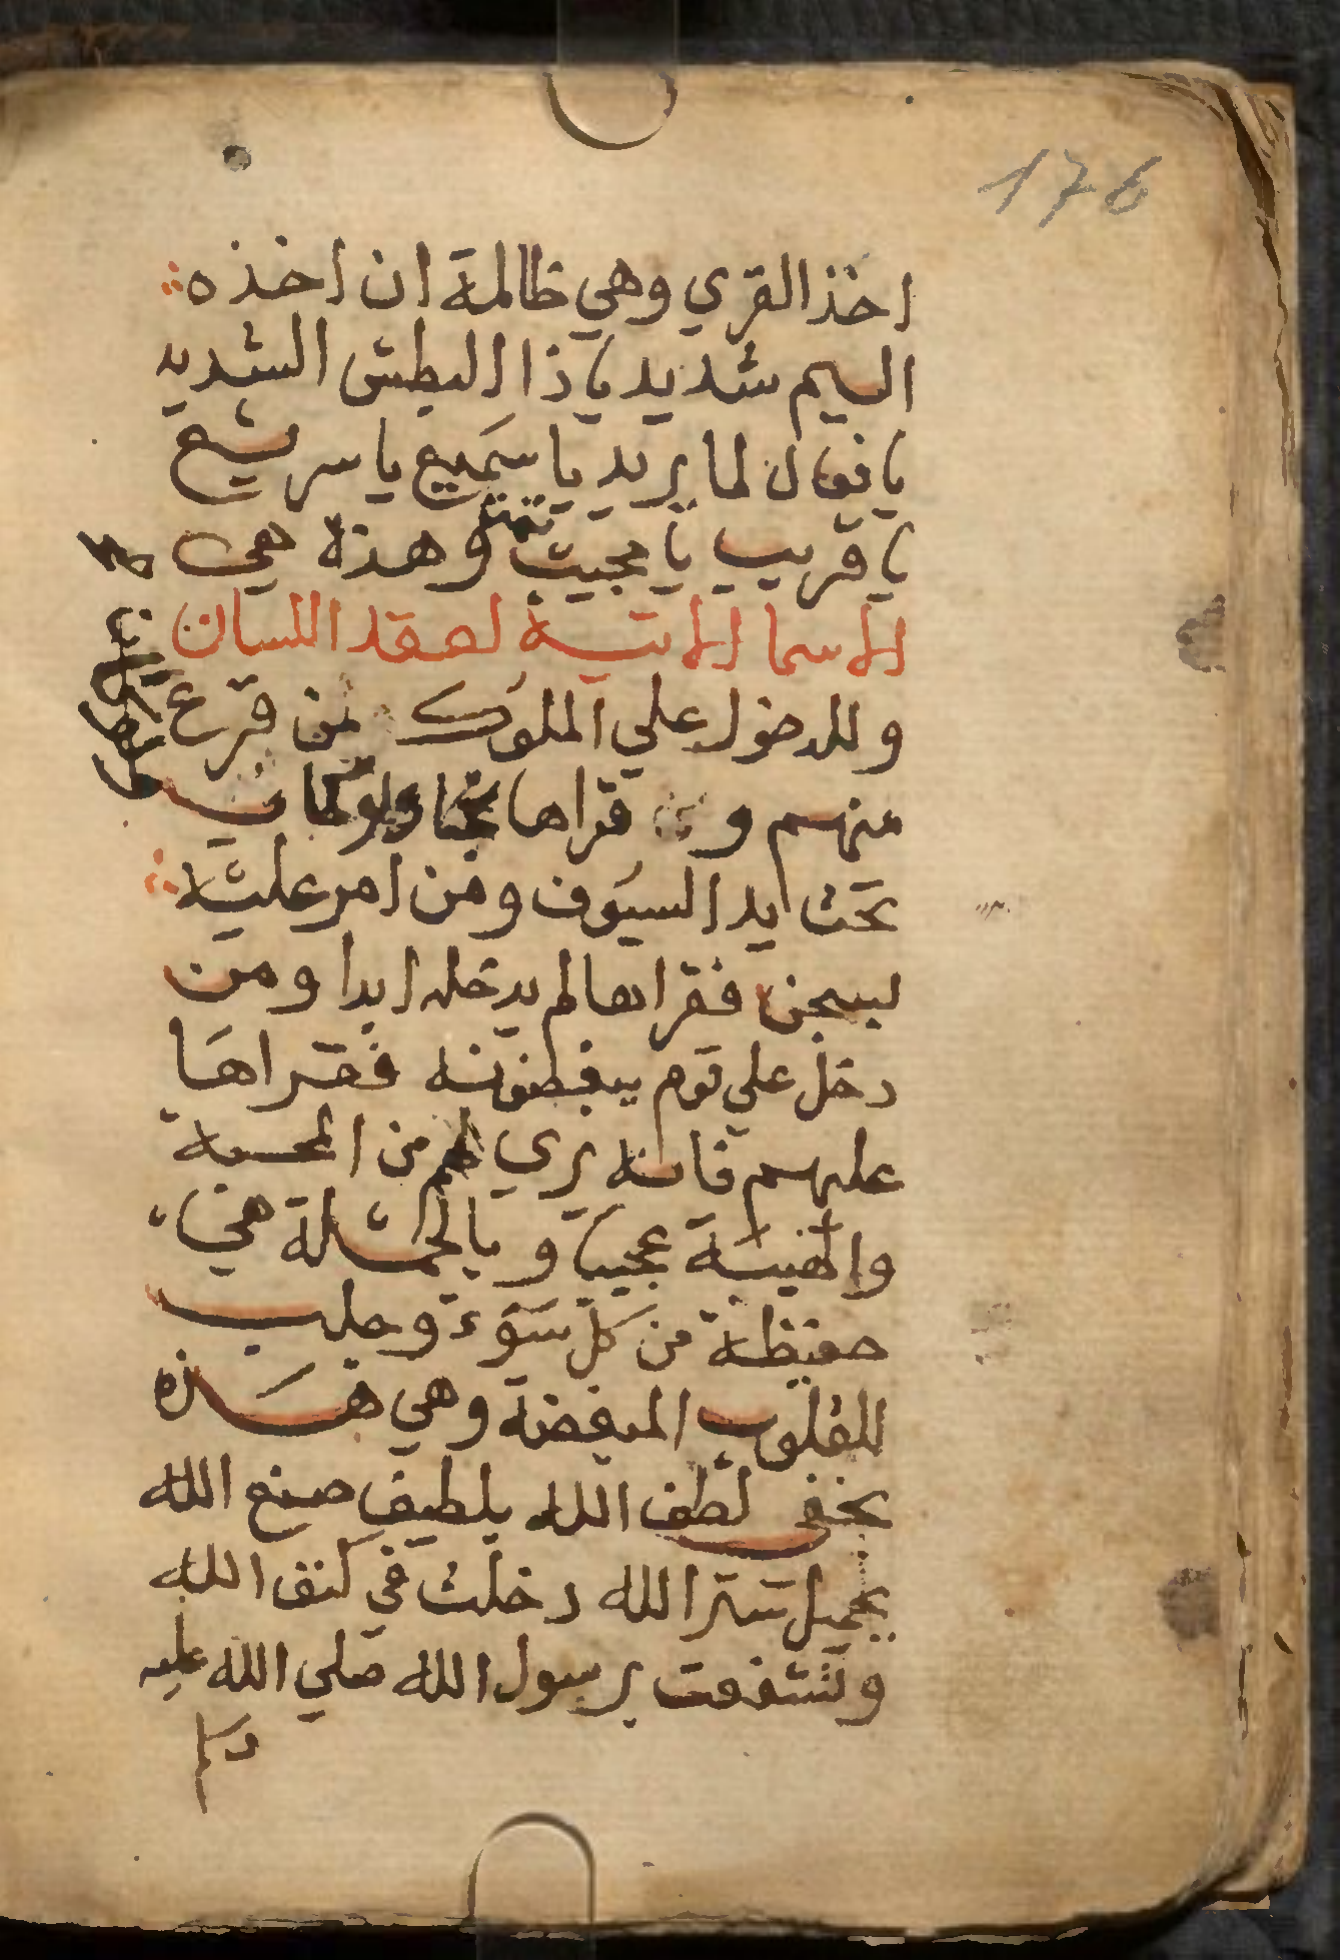 176
اخذ القري وهي ظالمة ان اخذه
اليم شديد يا ذا البطش الشديد
يا فعال لما يريد يا سميع يا سريع
يا قريب يا مجيب تمت وهذه هي
الاسما الاتية لعقد اللسان
وللدخول علي الملوك من فزع
منهم و قراها نجا ولو كان
تحت يد السيوف ومن امر عليه
لسجن فقراها لم يدخله ابدا ومن
دخل علي قوم يبغضونه فقراها
عليهم فانه يري لهم من المحبة
والهيبة عجيبا و بالجملة هي
حفيظة من كل سوء وجلب
للقلوب المبغضة وهي هذه
بخفي لطف الله بلطيف صنع الله
بجميل ستر الله دخلت في كنف الله
وتشفعت برسول الله صلي الله عليه